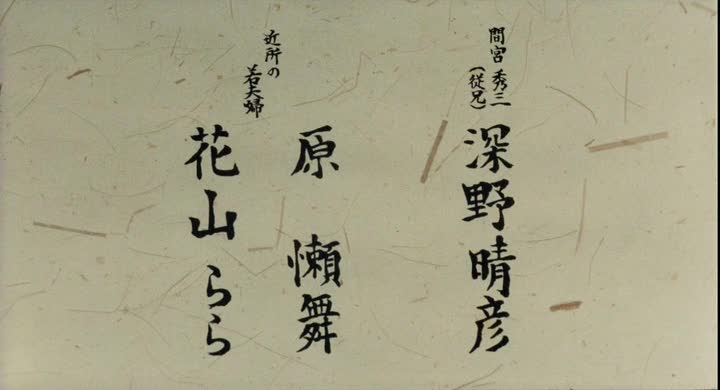 間宮 秀三
（従兄）
深野晴彦
近所の
若夫婦
原 懶舞
花山らら